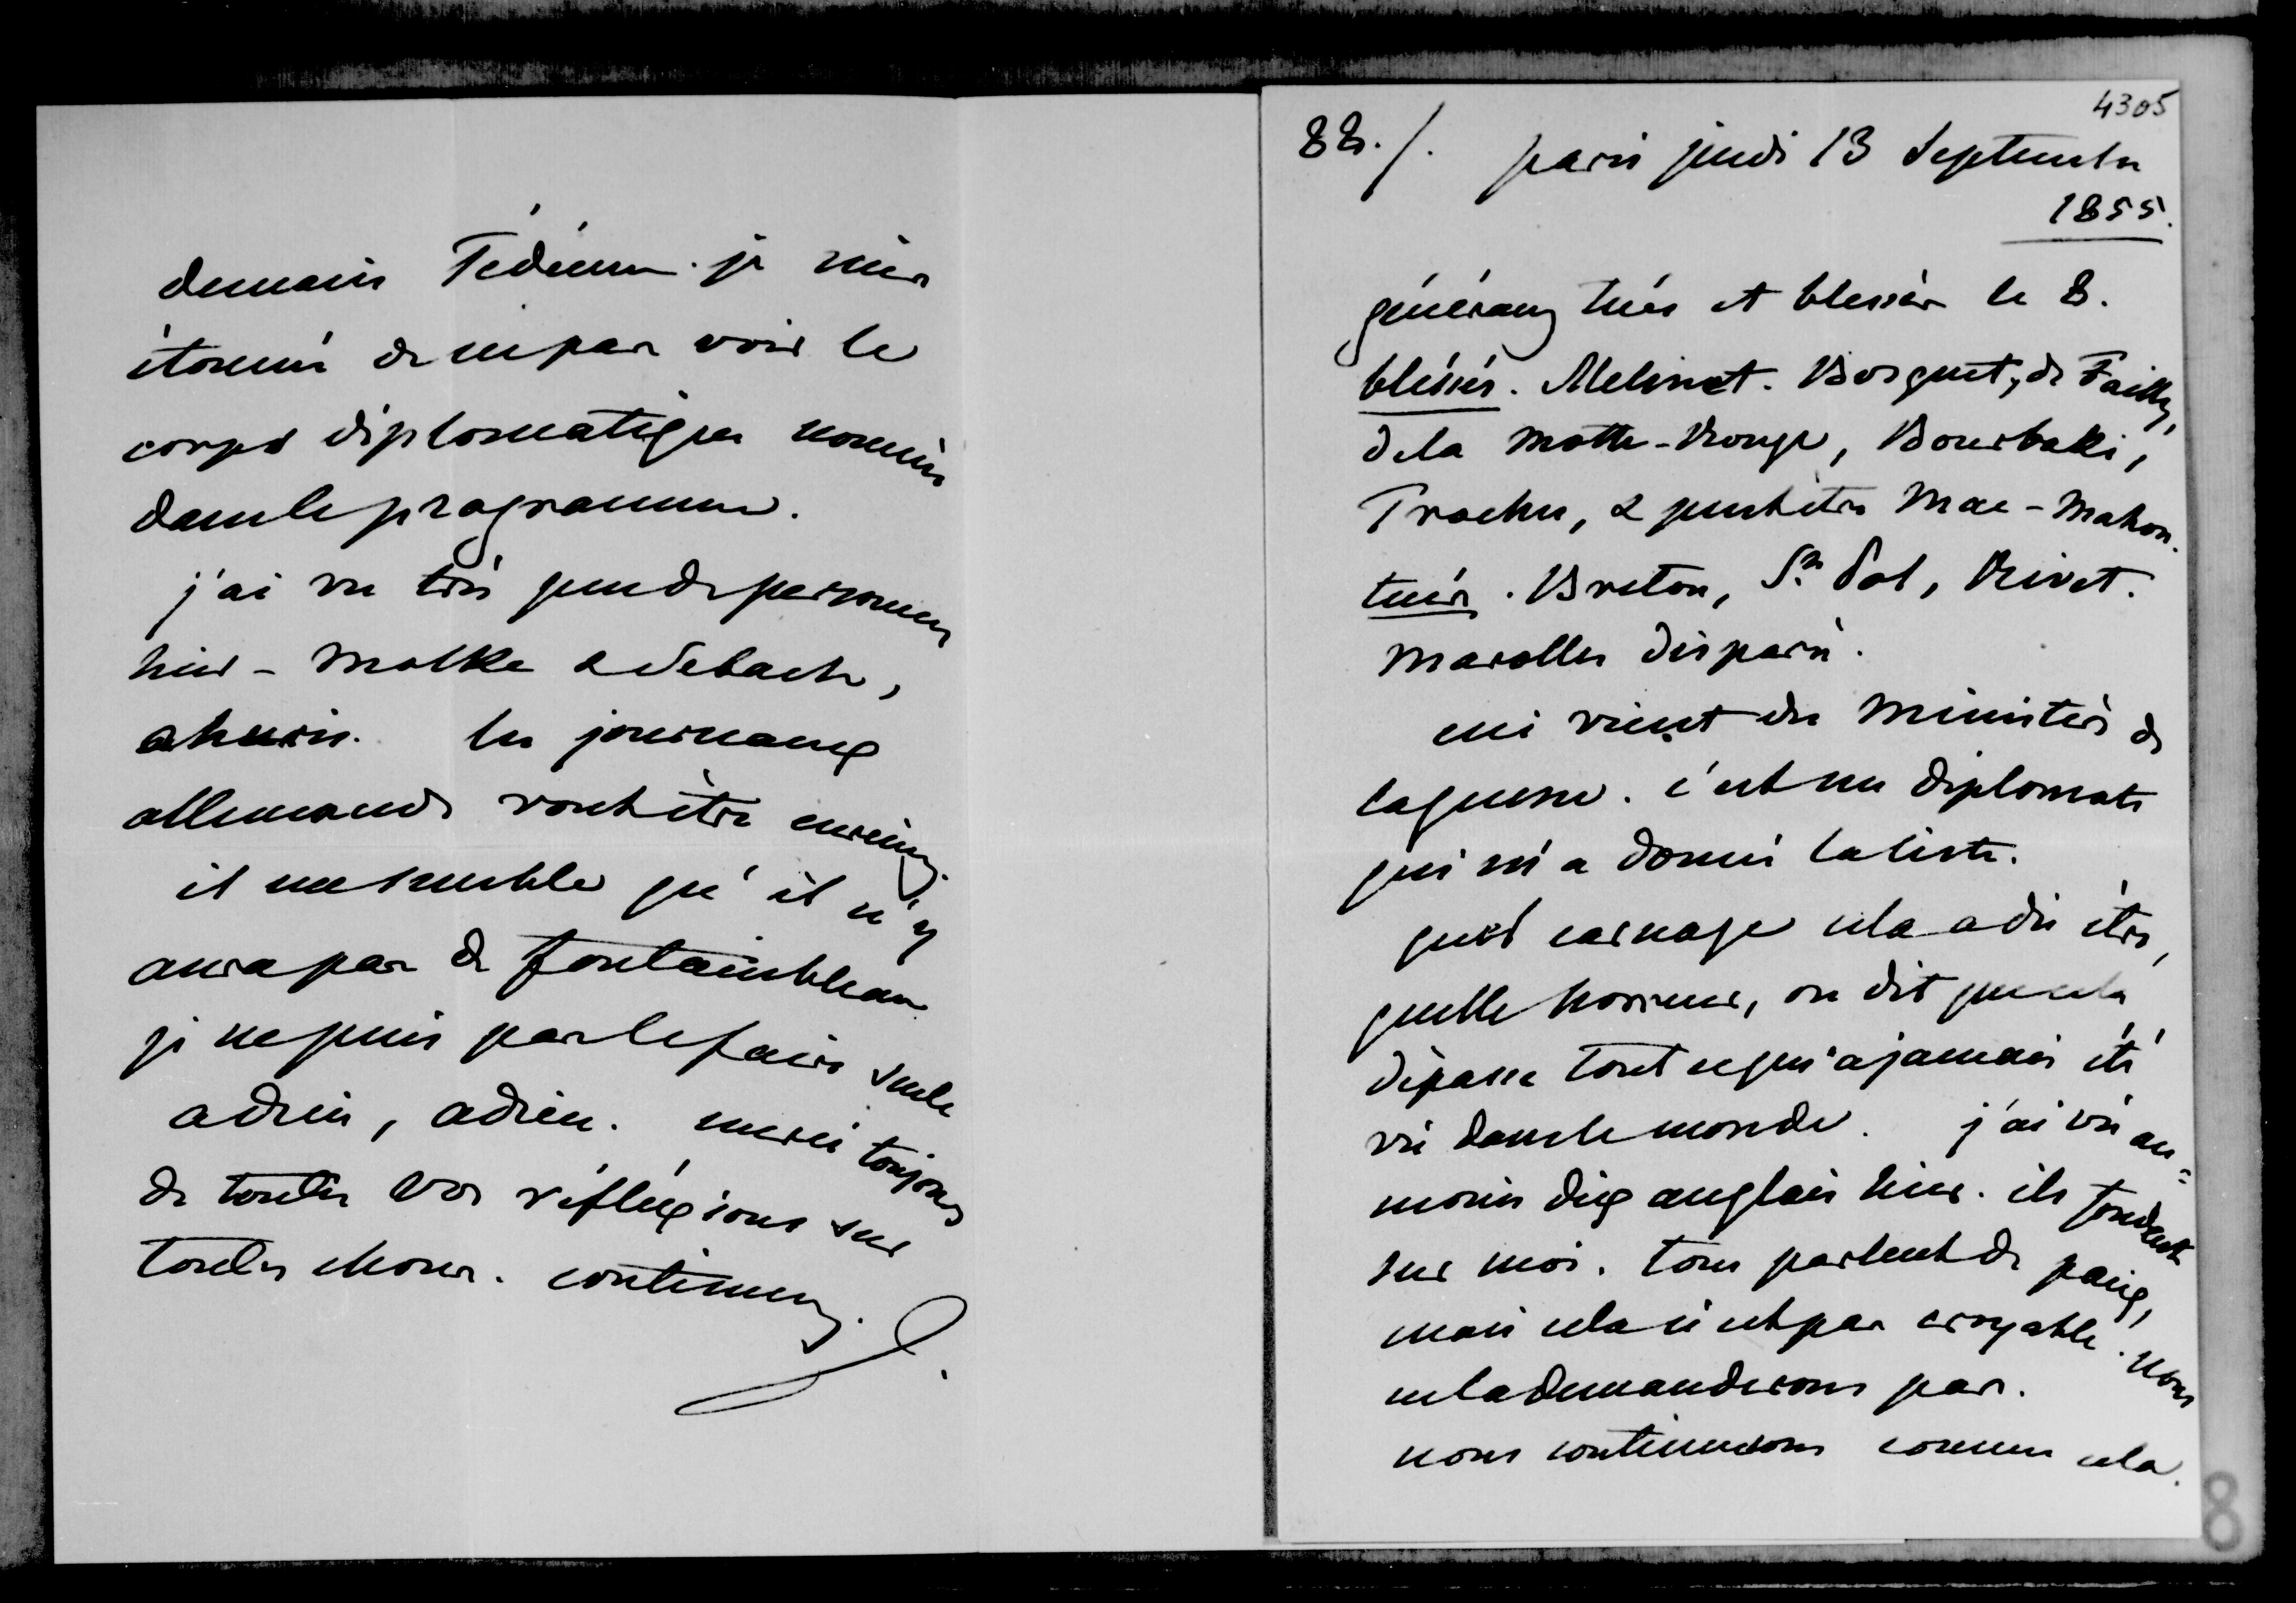 demain Tédéum. je suis
étonné de ne pas voir le
corps diplomatique nommé
dans le programme.
j'ai vu très peu de personnes
hier - Molke & Sebach,
ahuris. les journaux
allemands vont être curieux.
il me semble qu'il n'y
aura pas de fontainebleau
je ne puis pas le faire seule
adieu, adieu. merci toujours
de toutes vos réflexions sur
toutes choses. continuez.
4305
88./. paris jeudi 13 Septembre
1855.
généraux tués et blessés le 8.
blessés. Melinet. Bosquet, de Failly,
de la Motte-Rouge, Bourbaki,
Trochu, & peut être Mac-Mahon.
tués. Breton, St Pol, Rivet.
Marolles disparu.
ceci vient du Ministère de
la guerre. c'est un diplomate
qui m'a donné la liste.
quel carnage cela a dû être,
quelle horreur, on dit que cela
dépasse tout ce qui a jamais été
vu dans le monde. j'ai vu au=
moins dix anglais hier. ils fondent
sur moi. tous parlent de paix,
mais cela n'est pas croyable. nous
ne la demanderons pas.
nous continuerons comme cela.
8